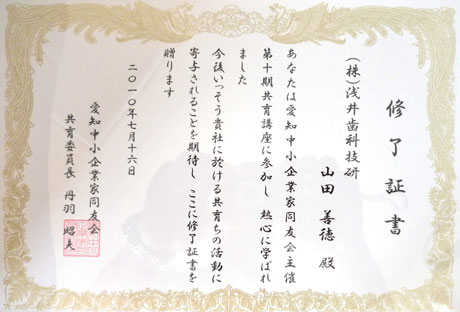 修了証書
(株)浅井歯科技研
山田善徳 殿
あなたは愛知中小企業家同友会主催
第十期共育講座に参加し 熱心に学ばれ
ました
今後いっそう貴社に於ける共育ちの活動に
寄与されることを期待し ここに修了証書を
贈ります
二〇一〇年七月十六日
愛知中小企業家同友会
共育委員長 丹羽 昭夫